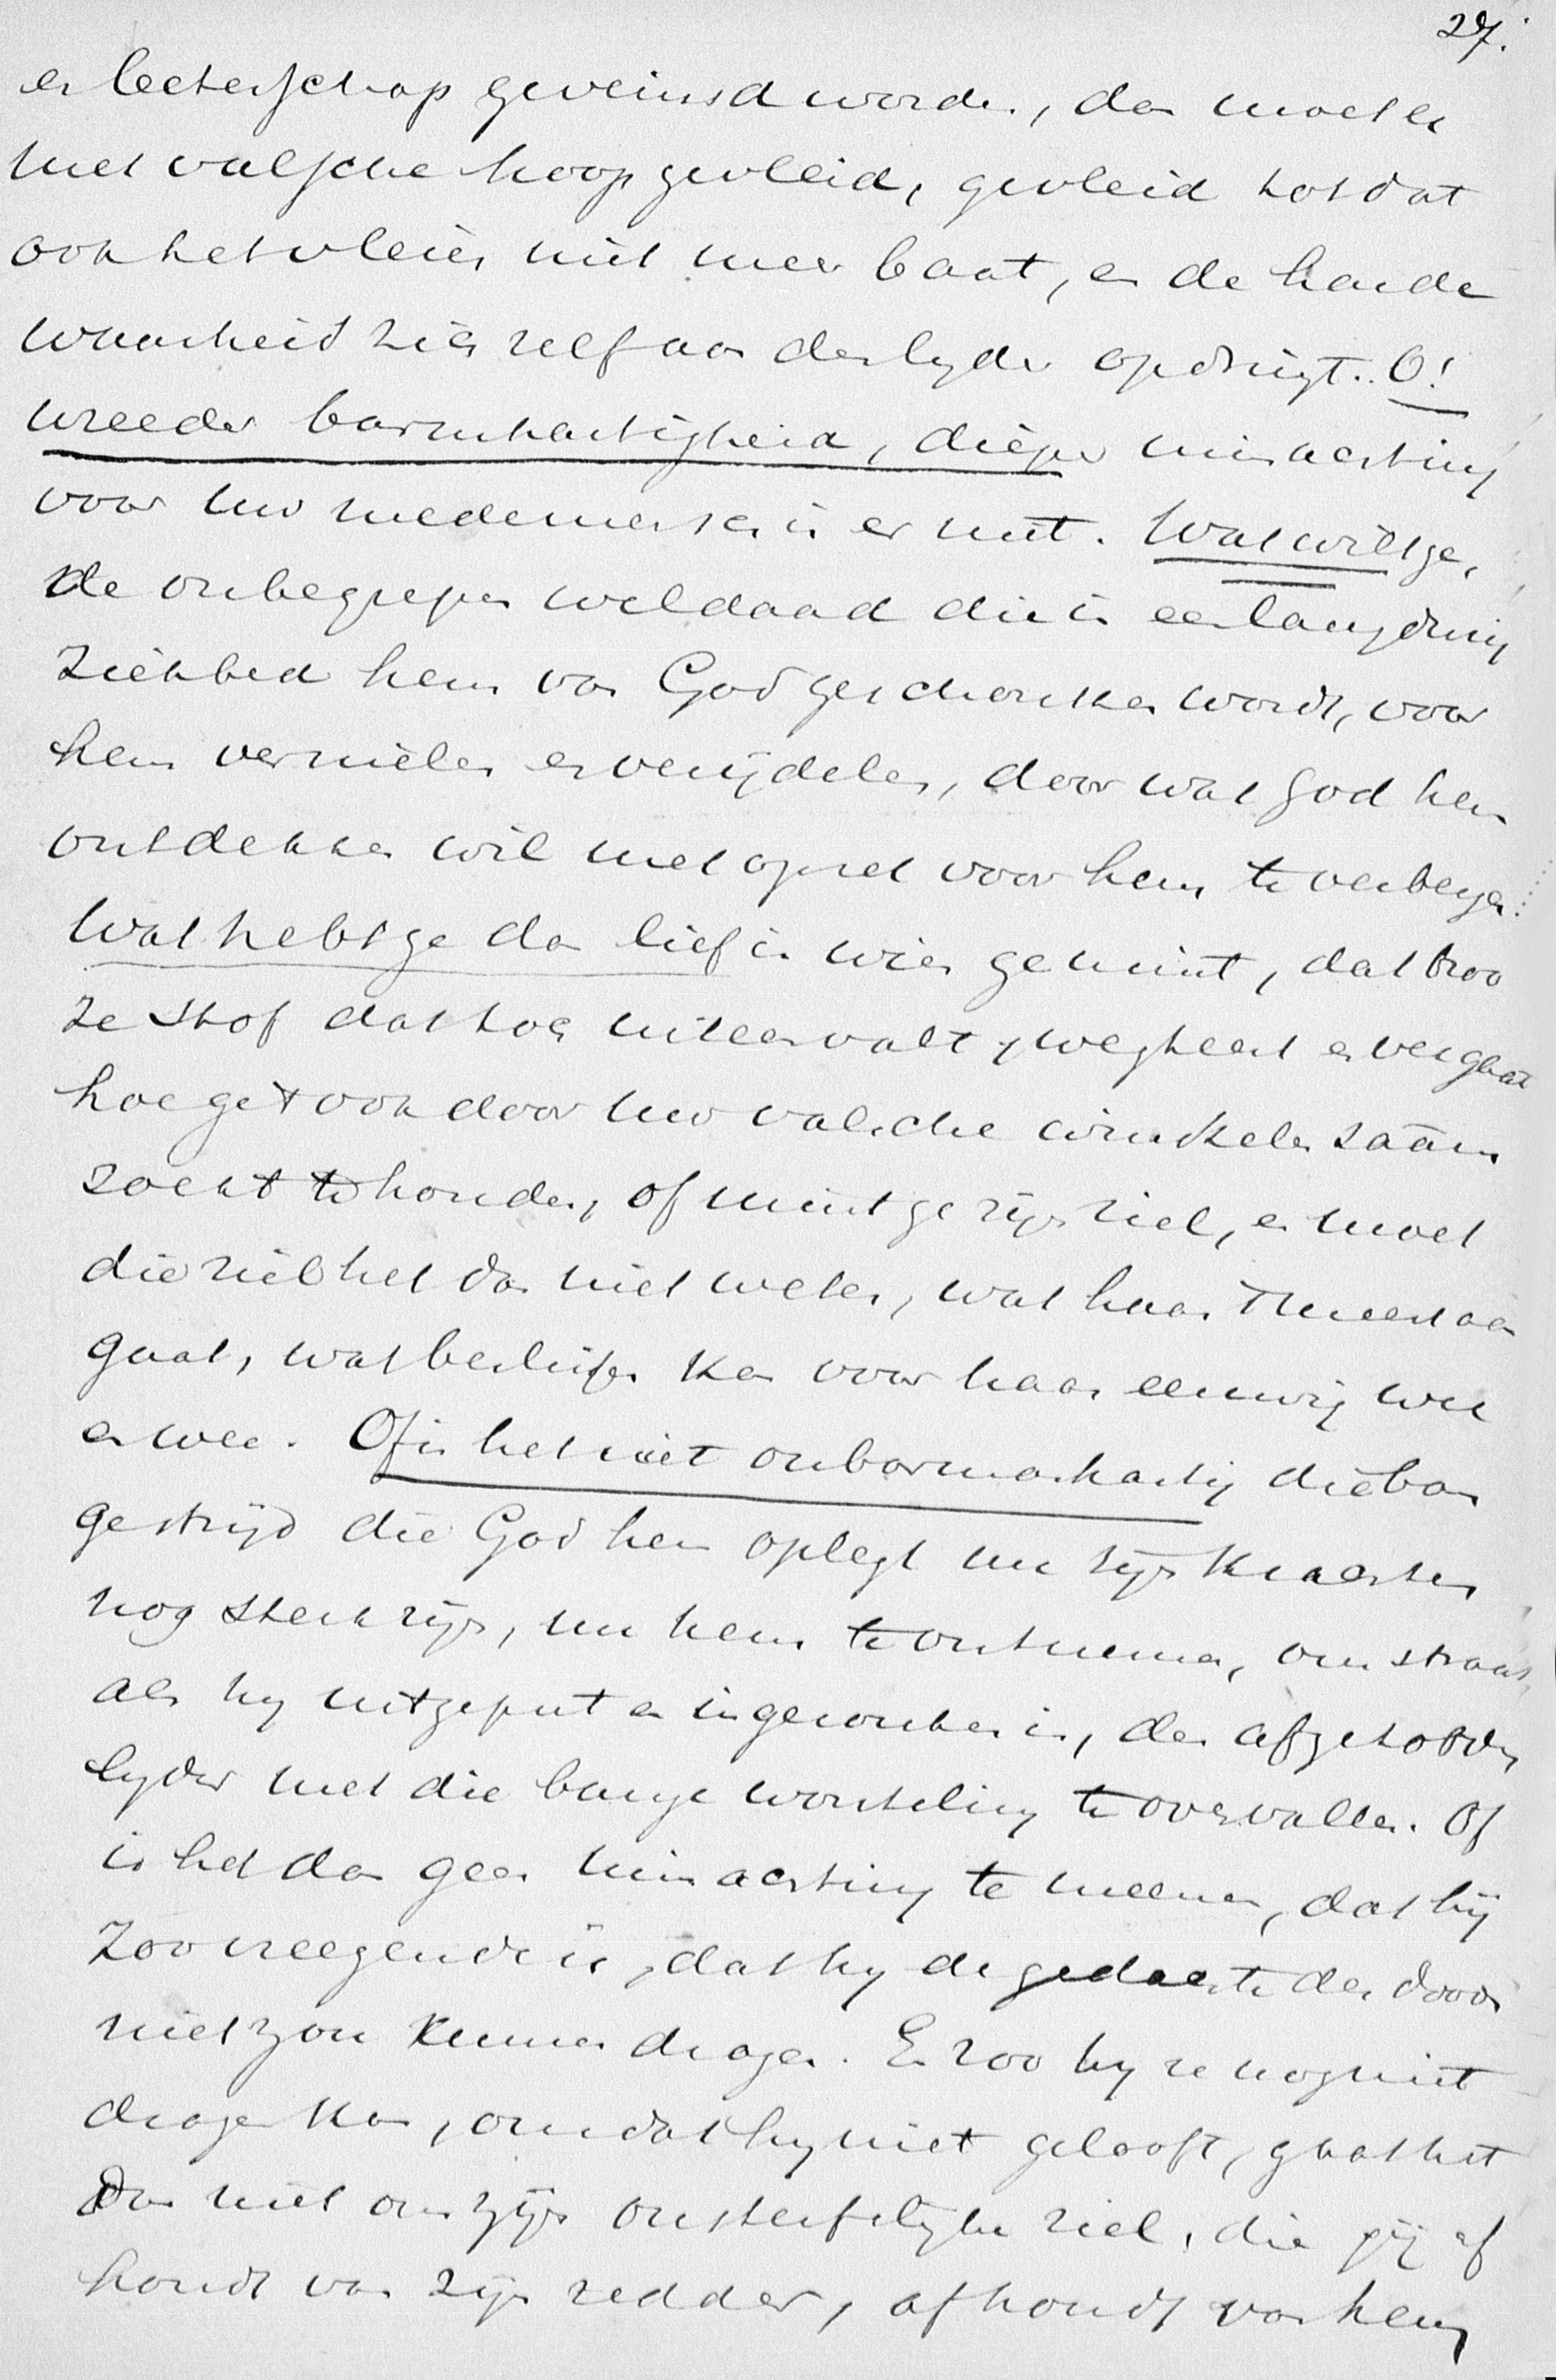 27.
en beterschap geveinsd worden, dan moet er
met valsche hoop gevleid, gevleid totdat
ook het vleien niet meer baat, en de harde
waarheid zich zelf aan den lyder opdringt. O!
wreeder barmhartigheid, dieper minachting
voor uw medemensch is er niet. Wat wilt ge,
de onbegrepen weldaad die in een langdurig
ziekbed hem van God geschonken wordt, voor
hem vernielen en verijdelen, door wat God hem
ontdekken wil met opzet voor hem te verbergen.
Wat hebt ge dan lief in wien ge mint, dat broo
ze stof dat toch uiteenvalt, wegkeert en vergaat
hoe ge 't ook door uw valsche winkelen saâm
zoekt te houden, of mint ge zijn ziel, en moet
die ziel het dan niet weten, wat haar 't meest aan
gaat, wat beslissen kan voor haar eeuwig wel
en wee. Of is het niet onbarmhartig die ban
gestrijd die God hem oplegt nu zijn krachten
nog sterk zijn, nu hem te ontnemen, om straks
als hy uitgeput en ingezonken is, den afgetobden
lyder met die bange worsteling te overvallen. Of
is het dan geen minachting te meenen, dat hij
zoo weegende is, dat hy de gedachte des doods
niet zou kunnen dragen. En zoo hy ze nog niet
dragen kan, omdat hy niet gelooft, gaat het
dan niet om zijn onsterfelyke ziel, die gij af
houdt van zijn redder, afhoudt van hem